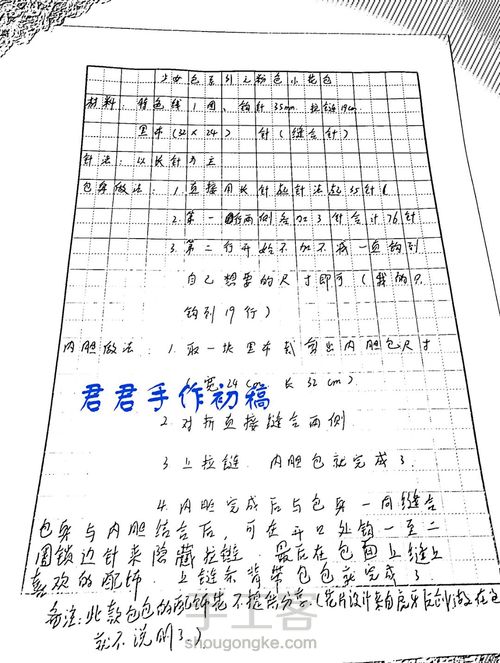 少女包系列之粉色小花包
材料：粉色线1团、钩针35mm 拉链19cm
里布(32×24) 针(缝合针)
针法：以长针为主
包身做法：1.直接用长针起针法起35针
2.第一行两侧各加3针合计76针
3.第二行开始不加不减一直钩到
自己想要的尺寸即可(我的只
钩到19行)
内胆做法：1.取一块里布裁剪出内胆包尺寸
宽24cm 长32cm)
君君手作初稿
2.对折直接缝合两侧
3.上拉链 内胆包就完成了
4.内胆完成后与包身一同缝合
包身与内胆结合后，可在开口处钩一至二
圈锁边针来隐藏拉链，最后在包面上缝上
喜欢的配饰，上链条背带包包就完成了
备注：此款包包的配饰花不提供分享(花片设计来自
就不说明了)
手工客
shougongke.com